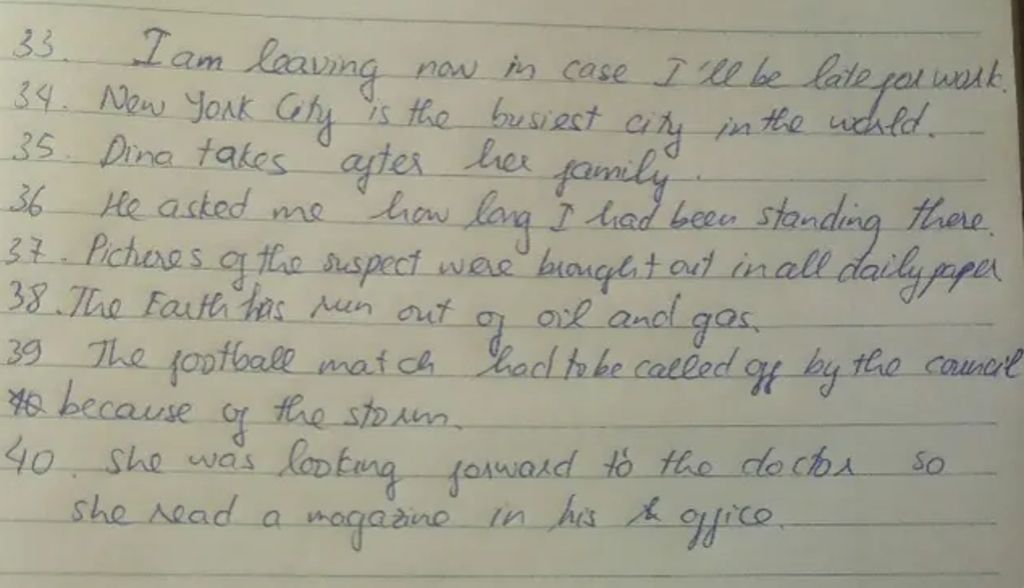 33. I am leaving now in case I'll be late for work.
34. New York City is the busiest city in the world.
35. Dina takes after her family.
36 He asked me how long I had been standing there.
37. Pictures of the suspect were brought out in all daily paper
38. The Earth has run out of oil and gas.
39 The football match had to be called off by the council
because of the storm.
40. She was looking forward to the doctor so
she read a magazine in his office.